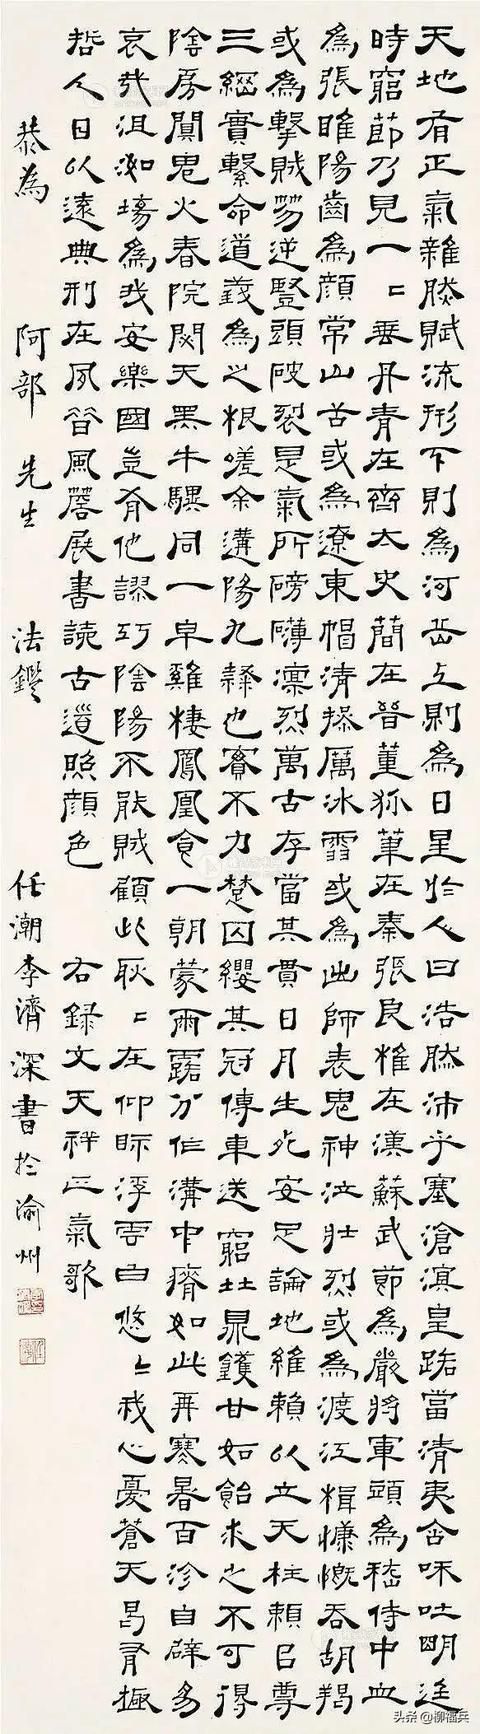 天地有正氣雜然賦流形下則為河岳上則為日星於人曰浩然沛乎塞滄溟皇路當清夷含和吐明廷
時窮節乃見一〻垂丹青在齊太史簡在晉董狐筆在秦張良椎在漢蘇武節為嚴將軍頭為嵇侍中血
為張睢陽齒為顏常山舌或為遼東帽清操厲冰雪或為出師表鬼神泣壯烈或為渡江楫慷慨吞胡羯
或為擊賊笏逆豎頭破裂是氣所磅礴凜烈萬古存當其貫日月生死安足論地維賴以立天柱賴以尊
三綱實繫命道義為之根嗟余遘陽九隸也實不力楚囚纓其冠傳車送窮北鼎鑊甘如飴求之不可得
陰房闃鬼火春院閟天黑牛驥同一皁雞棲鳳凰食一朝蒙雨露分作溝中瘠如此再寒暑百沴自辟易
哀哉沮洳場為我安樂國豈有他謬巧陰陽不能賊顧此耿〻在仰眎浮雲白悠〻我心憂蒼天曷有極
哲人日以遠典刑在夙昔風簷展書讀古道照顏色 右錄文天祥正氣歌
恭為 阿部 先生 法鑑 任潮李濟深書於渝州
头条 @柳福兵